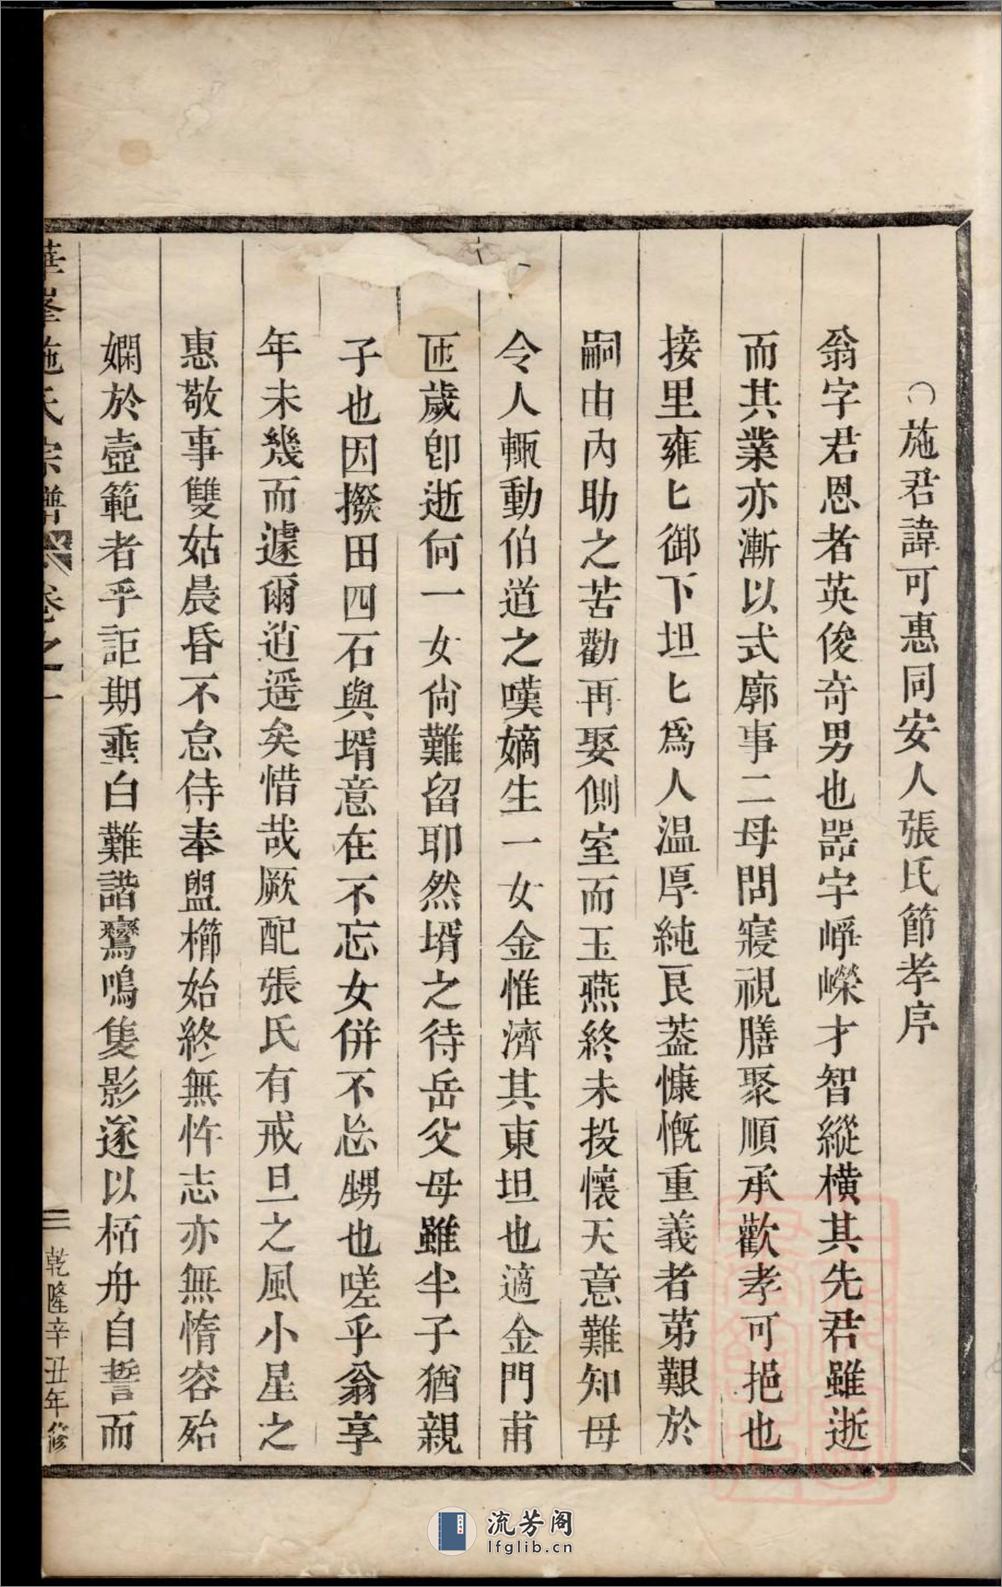 〇施君諱可惠同安人張氏節孝序
翁字君恩者英俊奇男也器宇崢嶸才智縱橫其先君雖逝
而其業亦漸以式廓事二母問寢視膳聚順承歡孝可挹也
接里雍匕御下坦匕為人溫厚純良蓋慷慨重義者苐艱於
嗣由內助之苦勸再娶側室而玉燕終未投懷天意難知毋
令人輒動伯道之嘆嫡生一女金惟濟其東坦也適金門甫
匝歲卽逝何一女尙難留耶然壻之待岳父母雖半子猶親
子也因撥田四石與壻意在不忘女併不忘甥也嗟乎翁享
年未幾而遽爾逍遥矣惜哉厥配張氏有戒旦之風小星之
惠敬事雙姑晨昏不怠侍奉盥櫛始終無忤志亦無惰容殆
嫻於壺範者乎詎期垂白難諧鸞鳴隻影遂以栢舟自誓而
華峯施氏宗譜 卷之一
三 乾隆辛丑年修
流芳阁
lfglib.cn